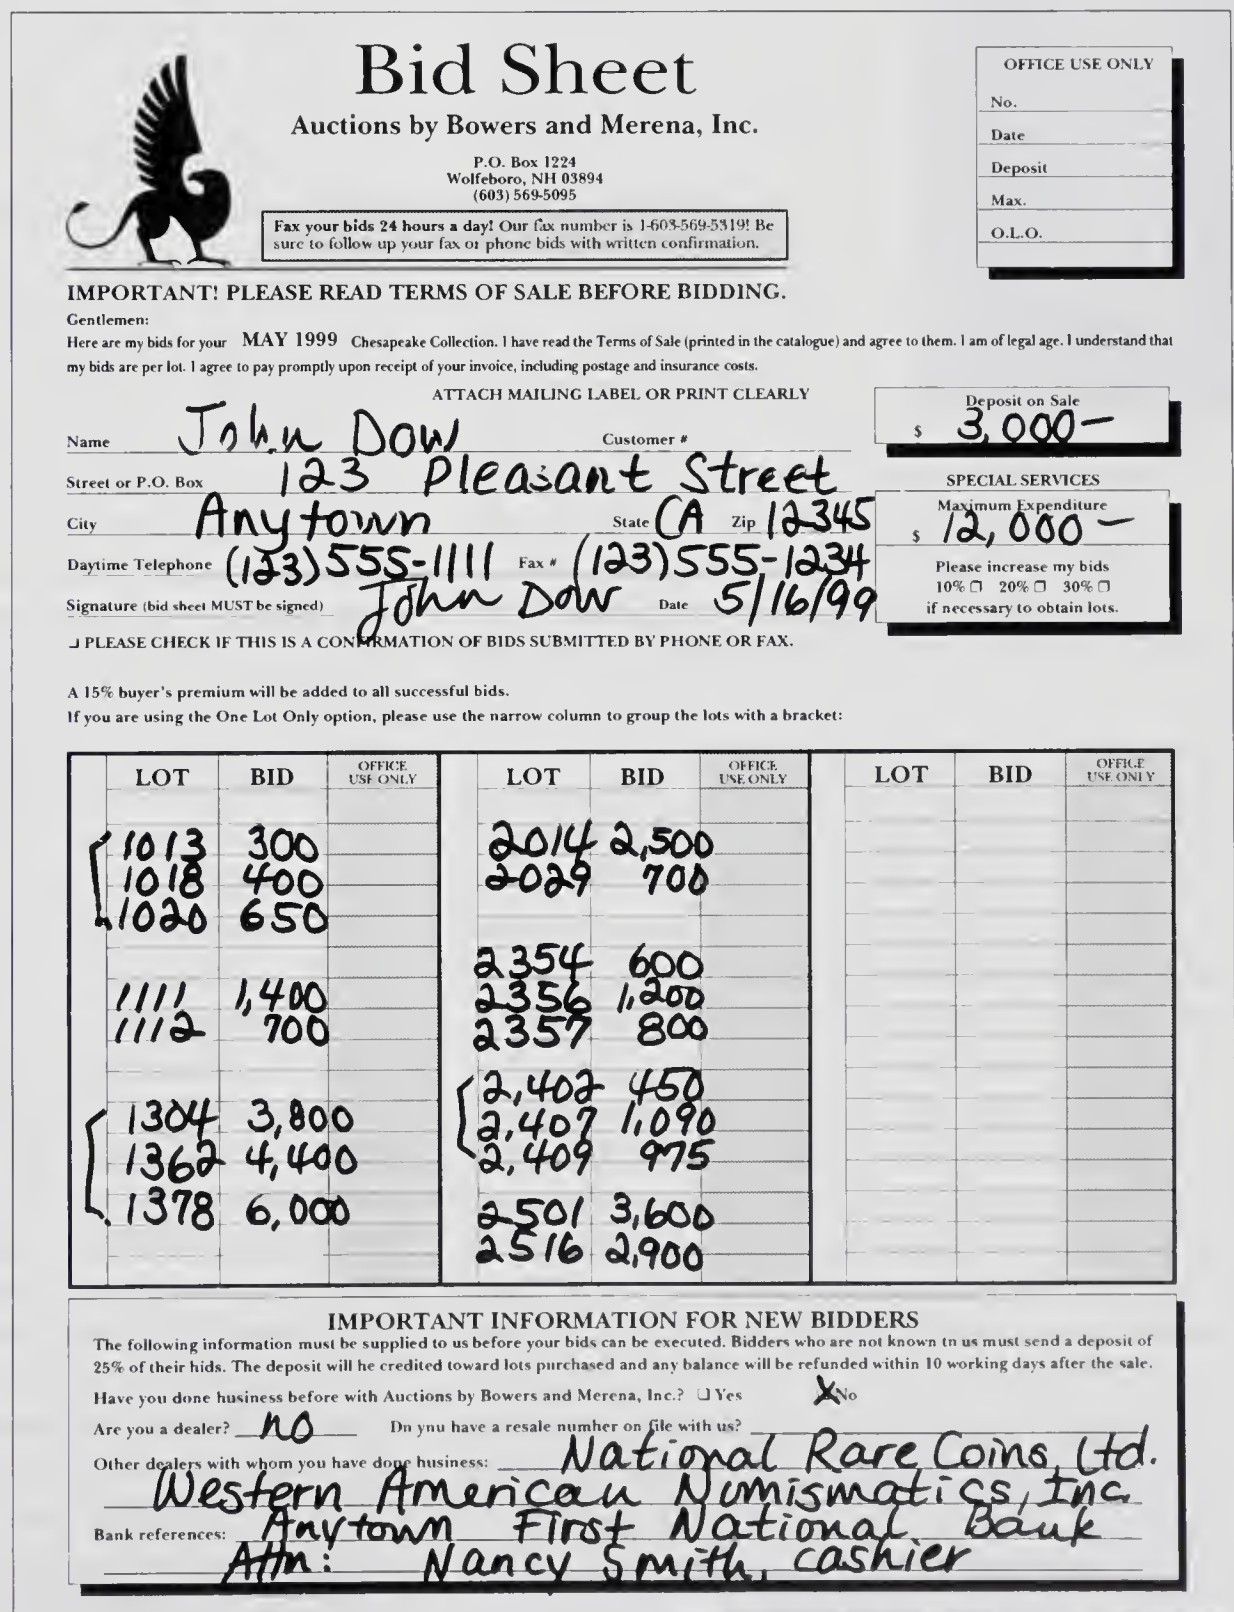 Bid Sheet
Auctions by Bowers and Merena, Inc.
P.O. Box 1224
Wolfeboro, NH 03894
(603) 569-5095
Fax your bids 24 hours a day! Our fax number is 1-603-569-5319! Be
sure to follow up your fax or phone bids with written confirmation.
OFFICE USE ONLY
No.
Date
Deposit
Max.
O.L.O.
IMPORTANT! PLEASE READ TERMS OF SALE BEFORE BIDDING.
Gentlemen:
Here are my bids for your MAY 1999 Chesapeake Collection. I have read the Terms of Sale (printed in the catalogue) and agree to them. I am of legal age. I understand that
my bids are per lot. I agree to pay promptly upon receipt of your invoice, including postage and insurance costs.
ATTACH MAILING LABEL OR PRINT CLEARLY
Name John Dow Customer #
Street or P.O. Box 123 Pleasant Street
City Anytown State CA Zip 12345
Daytime Telephone (123)555-1111 Fax # (123)555-1234
Signature (bid sheet MUST be signed) John Dow Date 5/16/99
Deposit on Sale
$ 3,000-
SPECIAL SERVICES
Maximum Expenditure
$ 12,000-
Please increase my bids
10% ❐ 20% ❐ 30% ❐
if necessary to obtain lots.
❐ PLEASE CHECK IF THIS IS A CONFIRMATION OF BIDS SUBMITTED BY PHONE OR FAX.
A 15% buyer's premium will be added to all successful bids.
If you are using the One Lot Only option, please use the narrow column to group the lots with a bracket:
LOT BID OFFICE USE ONLY
1013 300
1018 400
1020 650
1111 1,400
1112 700
1304 3,800
1362 4,400
1378 6,000
LOT BID OFFICE USE ONLY
2014 2,500
2029 700
2354 600
2356 1,200
2357 800
2,402 450
2,407 1,090
2,409 975
2501 3,600
2516 2,900
LOT BID OFFICE USE ONLY
IMPORTANT INFORMATION FOR NEW BIDDERS
The following information must be supplied to us before your bids can be executed. Bidders who are not known to us must send a deposit of
25% of their bids. The deposit will be credited toward lots purchased and any balance will be refunded within 10 working days after the sale.
Have you done business before with Auctions by Bowers and Merena, Inc.? ❐ Yes X No
Are you a dealer? no Do you have a resale number on file with us?
Other dealers with whom you have done business: National Rare Coins, Ltd.
Western American Numismatics, Inc.
Bank references: Anytown First National Bank
Attn: Nancy Smith, cashier